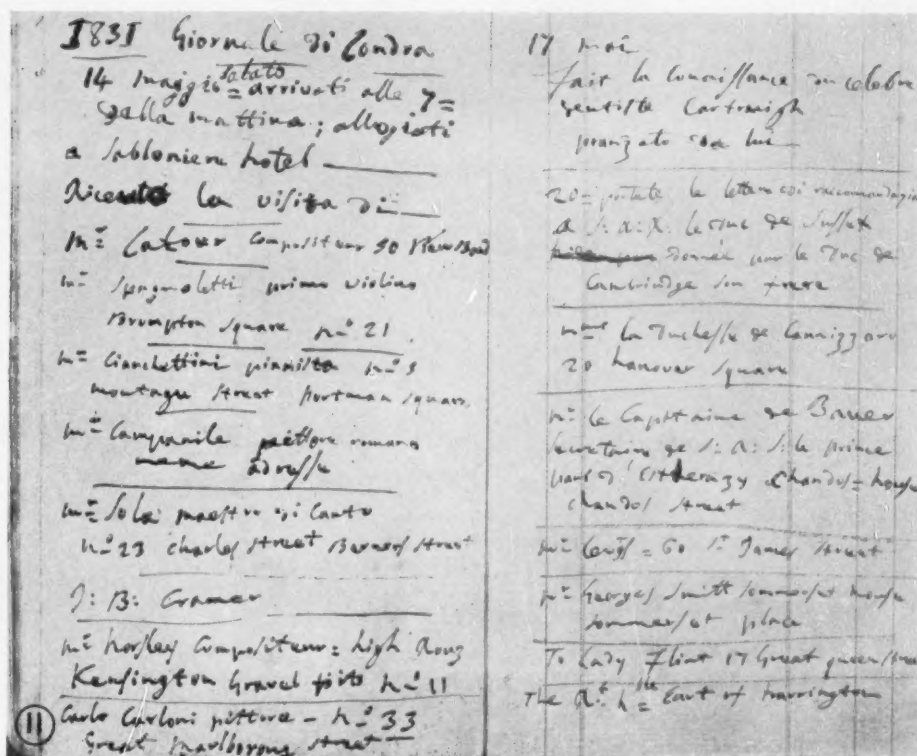 1831 Giornale di Londra
14 Maggio = sabato arrivati alle 7=
della mattina; allogiati
a Sabloniere hotel
la visita di
mr= Latour Compositeur 50 Road
mr= Spagnoletti primo violino
Brompton Square no 21
mr= Cianchettini pianista no 5
montagu Street Portman Square
mr= Campanile pittore romano
meme adresse
mr= Sola maestro di Canto
no 23 Charles Street Berners Street
J: B: Cramer
mr= Horsley Compositeur = high Row
Kensington Gravel pits no 11
11 Carlo Carloni pittore - no 33
Great Marlboroug Street
17 mai
fait la Connaissance du celebre
dentiste
pranzato da lui
20= portate le lettere di raccomandazio
a S: A: R: le Duc de Sussex
donnée par le Duc de
Cambridge son frere
mme la Duchesse de Cannizzaro
20 hanover Square
mr= le Capitaine de
Secretaire de S: A: S: le prince
Paul d' Estherazy Chandos = house
chandos Street
mr= = 60 St James Street
mr= Georges Smitt Sommerset house
Sommerset place
To Lady Flint 17 Great queen Street
The Rt hble Earl of Harrington